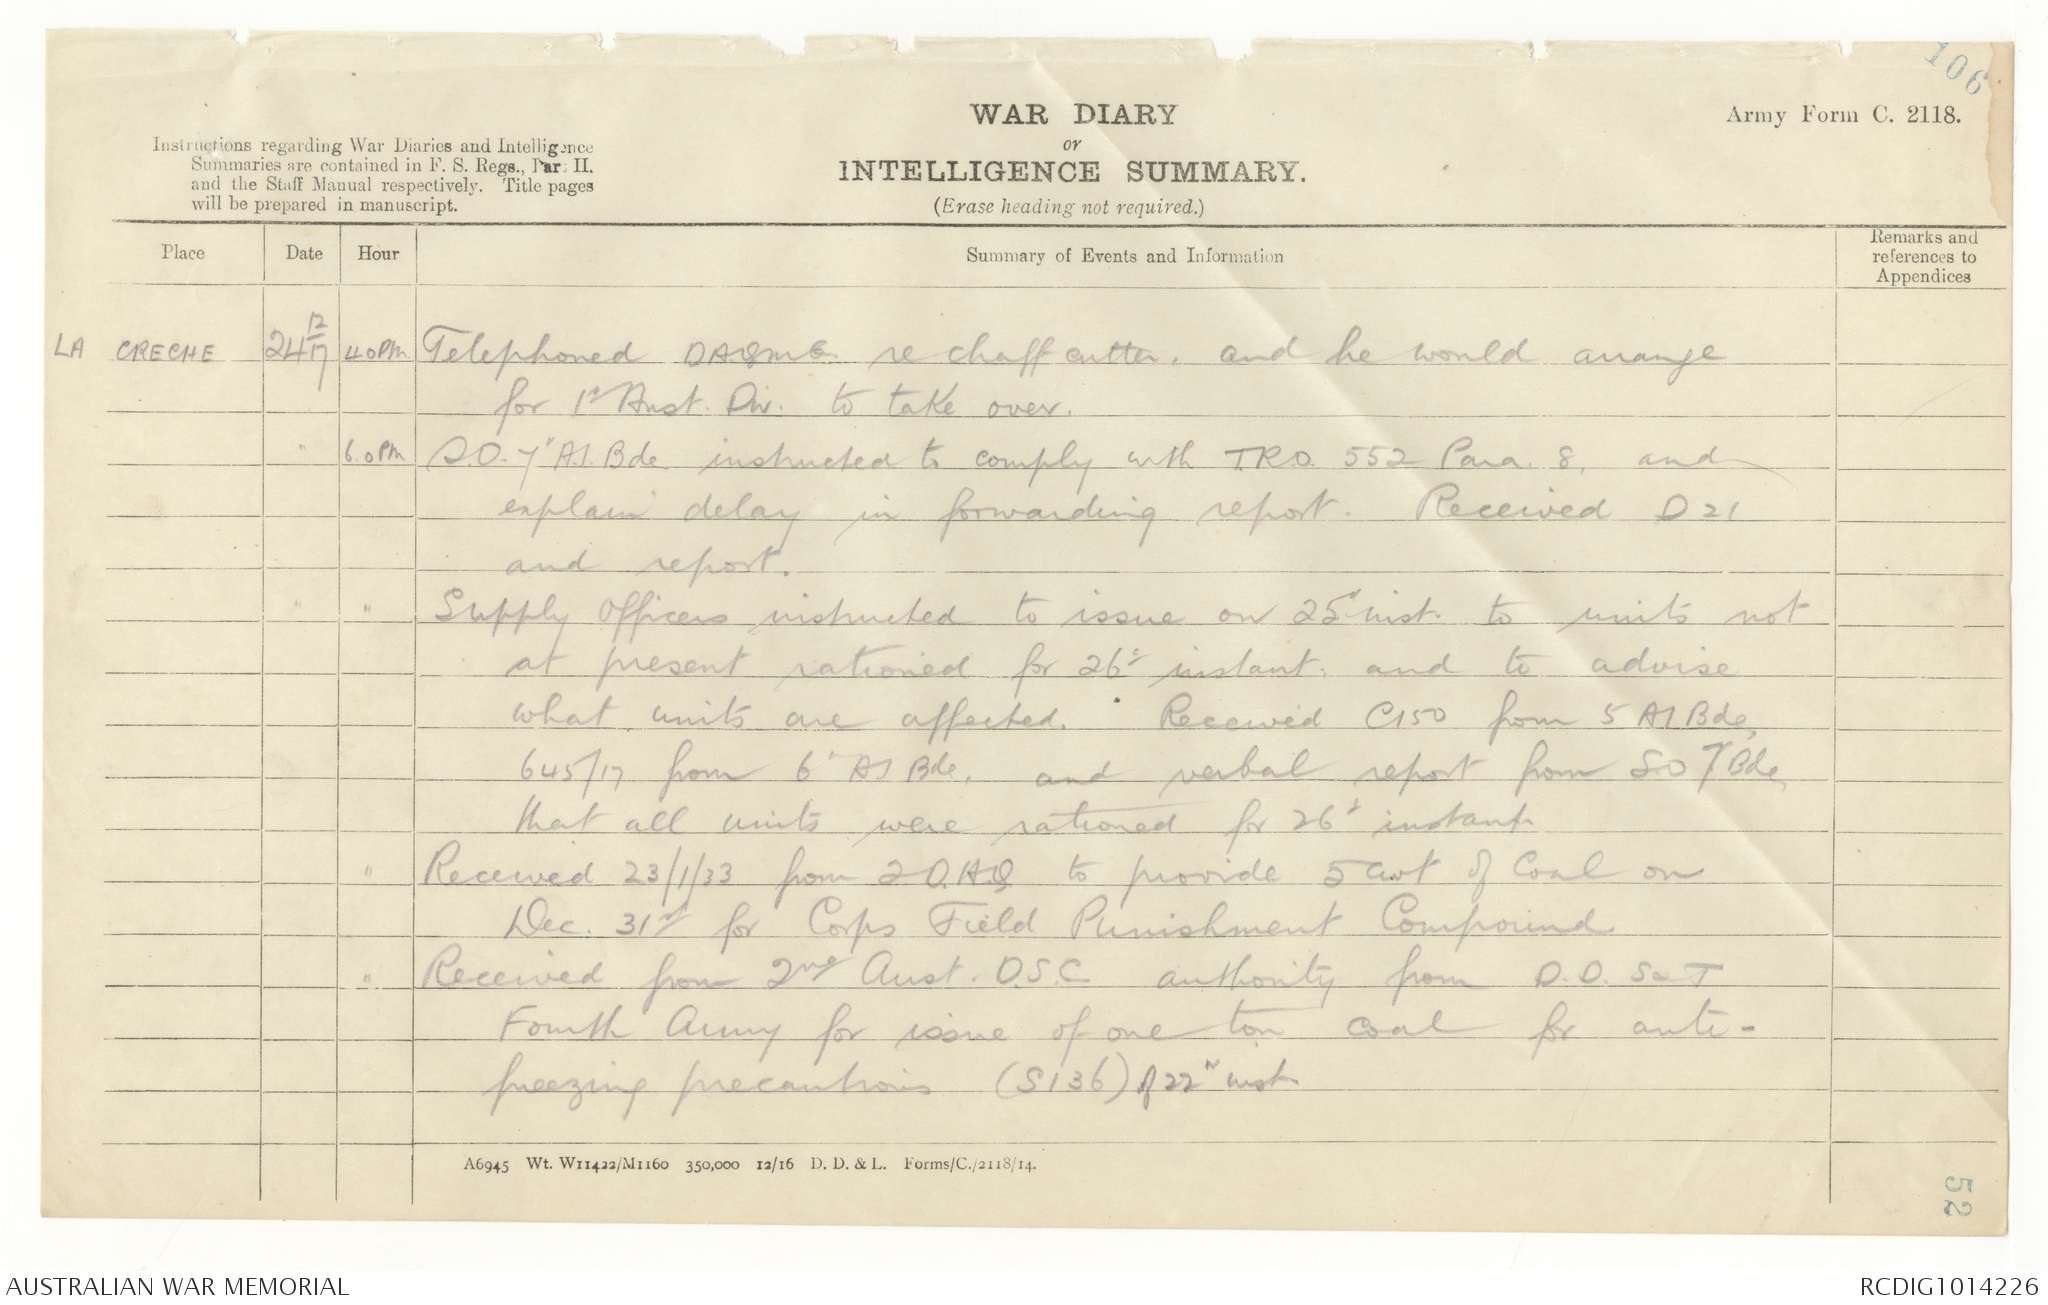 106
WAR DIARY
or
INTELLIGENCE SUMMARY.
(Erase heading not required.)
Army Form C. 2118.
Instructions regarding War Diaries and Intelligence
Summaries are contained in F. S. Regs., Part II.
and the Staff Manual respectively. Title pages
will be prepared in manuscript.
Place Date Hour Summary of Events and Information Remarks and references to Appendices
LA CRECHE 24/12/17 4.0PM Telephoned DAQMG re chaff cutter, and he would arrange
for 1st Aust. Div. to take over.
" 6.0PM S.O. 7" A.I. Bde instructed to comply with T.R.O. 552 Para. 8, and
explain delay in forwarding report. Received D21
and report.
" " Supply Officers instructed to issue on 25" inst. to units not
at present rationed for 26" instant and to advise
what units are affected. Received C150 from 5 AI Bde,
645/17 from 6" AI Bde, and verbal report from S.O 7 Bde
that all units were rationed for 26" instant
" Received 23/1/33 from 2 D.H.Q to provide 5 cwt of Coal on
Dec. 31st for Corps Field Punishment Compound
" Received from 2nd Aust. D.S.C authority from D.D. S & T
Fourth Army for issue of one ton coal for anti-
freezing precautions (S136) of 22" inst
A6945 Wt. W11422/M1160 350,000 12/16 D. D. & L. Forms/C./2118/14.
52
AUSTRALIAN WAR MEMORIAL
RCDIG1014226